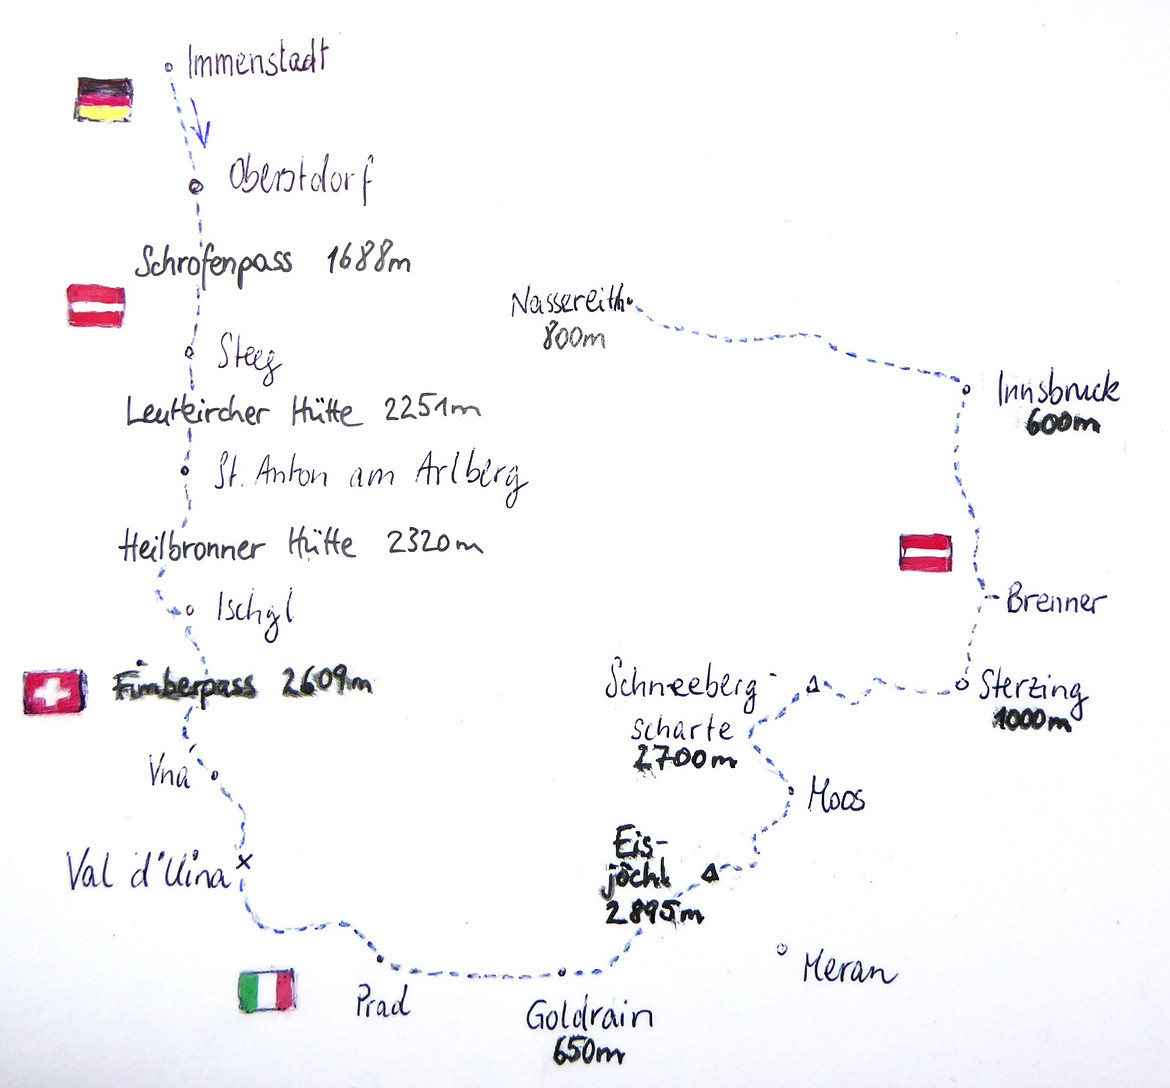 Immenstadt
Oberstdorf
Schrofenpass 1688m
Steeg
Leutkircher Hütte 2251m
St. Anton am Arlberg
Heilbronner Hütte 2320m
Ischgl
Fimberpass 2609m
Vná
Val d'Uina
Prad
Goldrain
650m
Eis-
jöchl
2895m
Meran
Moos
Schneeberg-
scharte
2700m
Sterzing
1000m
Brenner
Innsbruck
600m
Nassereith
800m